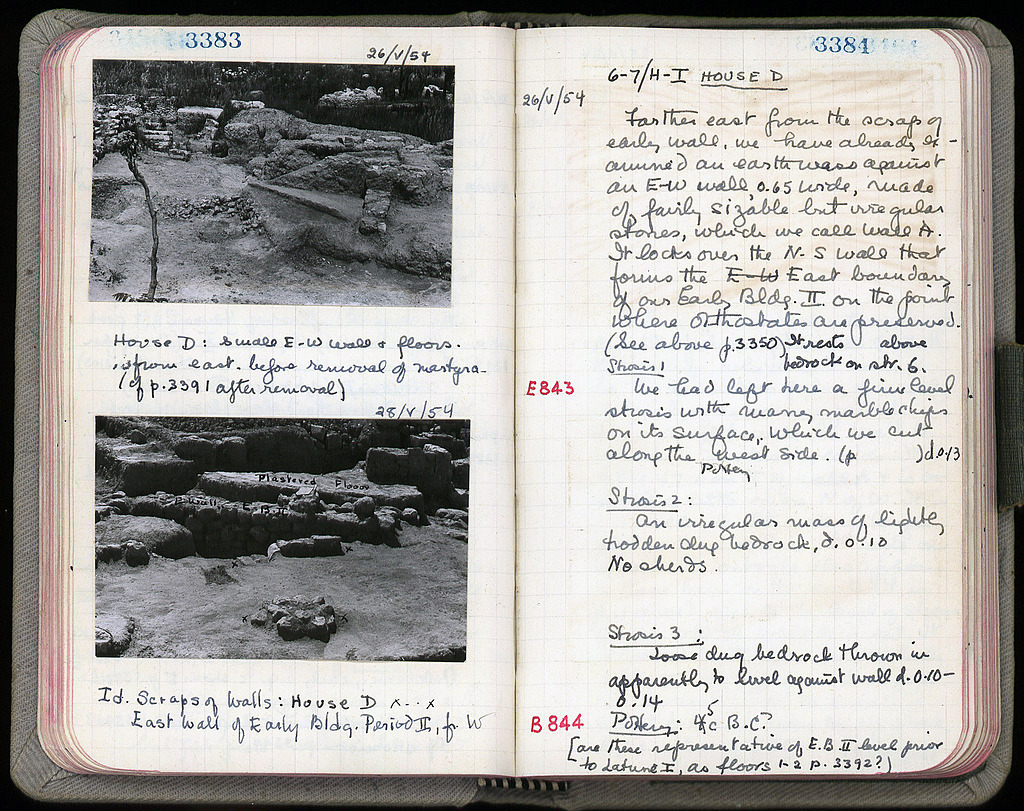 3383
26/V/54
House D: Small E-W wall & floors.
from east. before removal of martyra-
(cf p.3391 after removal)
28/V/54
Plastered Floor
E. Wall E. B. II
x
x x
Id. Scraps of walls: House D x...x
East Wall of Early Bldg. Period II, fr. W
3384
6-7/H-I HOUSE D
26/V/54
Farther east from the scrap of
early wall, we have already ex-
amined an earth mass against
an E-W wall, 0.65 wide, made
of fairly sizable but irregular
stones, which we call Wall A.
It locks over the N-S wall that
forms the E-W East boundary
of our Early Bldg. II on the point
where Orthostates are preserved.
(See above p.3350) It rests above
bedrock on str. 6.
Strosis 1
E843
We had left here a firm level
strosis with many marble chips
on its surface, which we cut
along the west side. (p ) d. 0.13
Pottery
Strosis 2:
An irregular mass of lightly
trodden dug bedrock, d. 0.10
No sherds.
Strosis 3:
Loose dug bedrock thrown in
apparently to level against wall d. 0.10-
0.14
B844
Pottery: 5 4c B.C.?
[are these representative of E.B. II level prior
to I, as floors 1-2 p. 3392?]